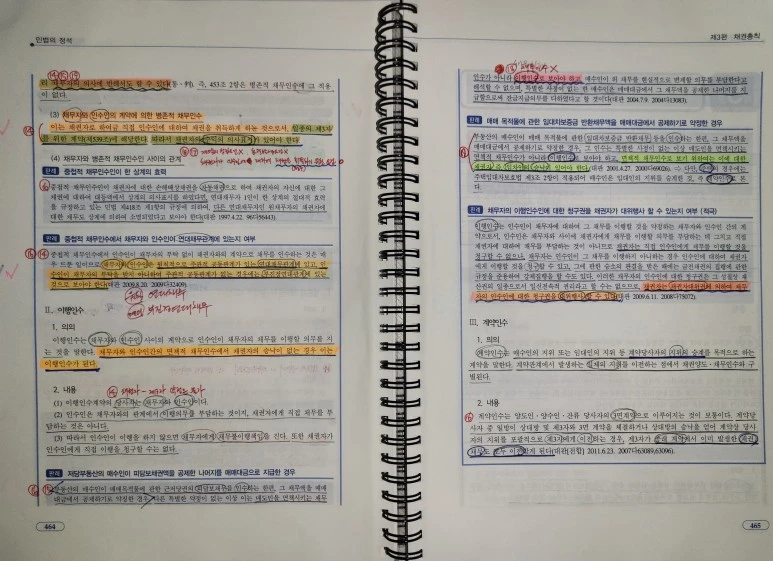 민법의 정석
의 채무자의 의사에 반해서도 할 수 있다(통·判). 즉, 453조 2항은 병존적 채무인수에 그 적용
이 없다.
(3) 채무자와 인수인의 계약에 의한 병존적 채무인수
이는 채권자로 하여금 직접 인수인에 대하여 채권을 취득하게 하는 것으로서, 일종의 제3자
를 위한 계약(제539조)에 해당한다. 따라서 채권자의 수익의 의사표시가 있어야 한다.
(4) 채무자와 병존적 채무인수인 사이의 관계
판례 중첩적 채무인수인이 한 상계의 효력
중첩적 채무인수인이 채권자에 대한 손해배상채권을 자동채권으로 하여 채권자의 자신에 대한 그
채권에 대하여 대등액에서 상계의 의사표시를 하였다면, 연대채무자 1인이 한 상계의 절대적 효력
을 규정하고 있는 민법 제418조 제1항의 규정에 의하여, 다른 연대채무자인 원채무자의 채권자에
대한 채무도 상계에 의하여 소멸되었다고 보아야 한다(대판 1997.4.22. 96다56443).
판례 중첩적 채무인수에서 채무자와 인수인이 연대채무관계에 있는지 여부
중첩적 채무인수에서 인수인이 채무자의 부탁 없이 채권자와의 계약으로 채무를 인수하는 것은 매
우 드문 일이므로 채무자와 인수인은 원칙적으로 주관적 공동관계가 있는 연대채무관계에 있고, 인
수인이 채무자의 부탁을 받지 아니하여 주관적 공동관계가 없는 경우에는 부진정연대관계에 있는
것으로 보아야 한다(대판 2009.8.20. 2009다32409).
연대채무
부진정연대채무
Ⅱ. 이행인수
1. 의의
이행인수는 채무자와 인수인 사이의 계약으로 인수인이 채무자의 채무를 이행할 의무를 지
는 것을 말한다. 채무자와 인수인간의 면책적 채무인수에서 채권자의 승낙이 없는 경우 이는
이행인수가 된다.
2. 내용
(1) 이행인수계약의 당사자는 채무자와 인수인이다.
(2) 인수인은 채무자와의 관계에서 이행의무를 부담하는 것이지, 채권자에게 직접 채무를 부
담하는 것은 아니다.
(3) 따라서 인수인이 이행을 하지 않으면 채무자에게 채무불이행책임을 진다. 또한 채권자가
인수인에게 직접 이행을 청구할 수는 없다.
판례 저당부동산의 매수인이 피담보채권액을 공제한 나머지를 매매대금으로 지급한 경우
부동산의 매수인이 매매목적물에 관한 근저당권의 피담보채무를 인수하는 한편, 그 채무액을 매매
대금에서 공제하기로 약정한 경우, 다른 특별한 약정이 없는 이상 이는 매도인을 면책시키는 채무
464
제3편 채권총칙
인수가 아니라 이행인수로 보아야 하고, 매수인이 위 채무를 현실적으로 변제할 의무를 부담한다고
해석할 수 없으며, 특별한 사정이 없는 한 매수인은 매매대금에서 그 채무액을 공제한 나머지를 지
급함으로써 잔금지급의무를 다하였다고 할 것이다(대판 2004.7.9. 2004다13083).
판례 매매 목적물에 관한 임대차보증금 반환채무액을 매매대금에서 공제하기로 약정한 경우
부동산의 매수인이 매매 목적물에 관한 임대차보증금 반환채무 등을 인수하는 한편, 그 채무액을
매매대금에서 공제하기로 약정한 경우, 그 인수는 특별한 사정이 없는 이상 매도인을 면책시키는
면책적 채무인수가 아니라 이행인수로 보아야 하고, 면책적 채무인수로 보기 위하여는 이에 대한
채권자 즉 임차인의 승낙이 있어야 한다(대판 2001.4.27. 2000다69026)
주택임대차보호법 제3조 2항이 적용되어 매수인은 임대인의 지위를 승계한
판례 채무자의 이행인수인에 대한 청구권을 채권자가 대위행사 할 수 있는지 여부 (적극)
이행인수는 인수인이 채무자에 대하여 그 채무를 이행할 것을 약정하는 채무자와 인수인 간의 계
약으로서, 인수인은 채무자와 사이에 채권자에게 채무를 이행할 의무를 부담하는 데 그치고 직접
채권자에 대하여 채무를 부담하는 것이 아니므로 채권자는 직접 인수인에게 채무를 이행할 것을
청구할 수 없으나, 채무자는 인수인이 그 채무를 이행하지 아니하는 경우 인수인에 대하여 채권자
에게 이행할 것을 청구할 수 있고, 그에 관한 승소의 판결을 받은 때에는 금전채권의 집행에 관한
규정을 준용하여 강제집행을 할 수도 있다. 이러한 채무자의 인수인에 대한 청구권은 그 성질상 재
산권의 일종으로서 일신전속적 권리라고 할 수는 없으므로, 채권자는 채권자대위권에 의하여 채무
자의 인수인에 대한 청구권을 대위행사 할 수 있다(대판 2009.6.11. 2008다75072).
Ⅲ. 계약인수
1. 의의
계약인수는 매수인의 지위 또는 임대인의 지위 등 계약당사자의 지위의 승계를 목적으로 하는
계약을 말한다. 계약관계에서 발생하는 일체의 지위를 이전하는 점에서 채권양도·채무인수와 구
별된다.
2. 내용
계약인수는 양도인·양수인·잔류 당사자의 3면계약으로 이루어지는 것이 보통이다. 계약당
사자 중 일방이 상대방 및 제3자와 3면 계약을 체결하거나 상대방의 승낙을 얻어 계약상 당사
자의 지위를 포괄적으로 제3자에게 이전하는 경우, 제3자가 종래 계약에서 이미 발생한 채권·
채무도 모두 이전받게 된다(대판(전합) 2011.6.23. 2007다63089,63096).
465